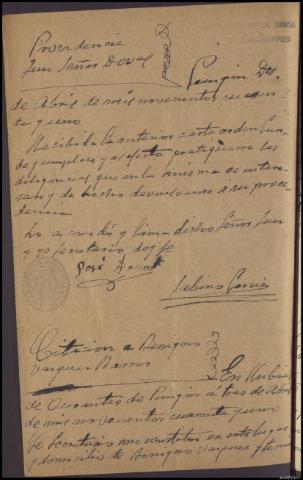 Providencia
Juez Señor Doval
Pungin Dos
de Abril de mil novecientos cuaren
ta y uno
Recibida la anterior carta orden Guar
de y cumplase y al efecto practiquense las
diligencias que en la misma se intere
san y de hecho devuelvanse a su proce
dencia
Lo acordó y firma dicho Señor Juez
y yo Secretario doy fe
José Doval
Celrino Garcia
Citacion a Benigno
Vazquez
En
de de Pungin á tres de Abril
de mil novecientos cuarenta y uno
Yo Secretario me constitui en este lugar
y domicilio de Benigno Vazquez y